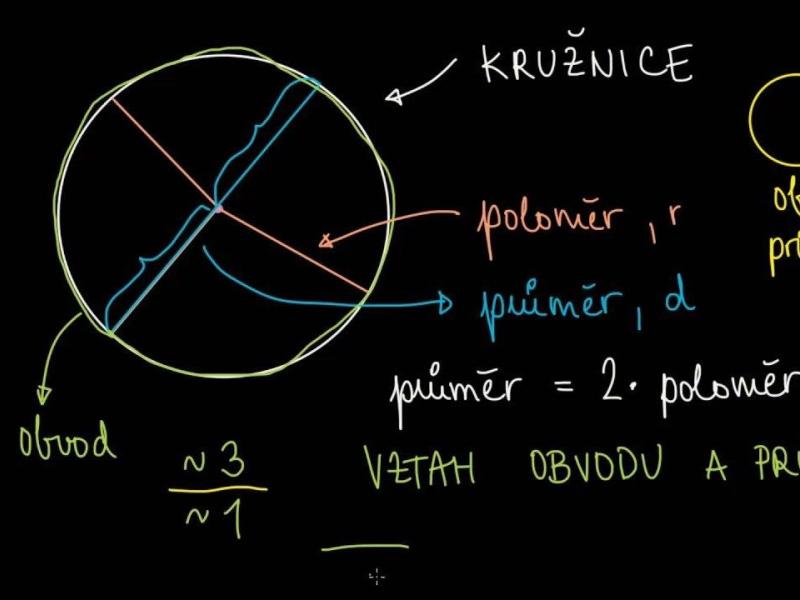 KRUŽNICE
poloměr , r
průměr , d
průměr = 2 · poloměr
obvod
~ 3
~ 1
VZTAH OBVODU A